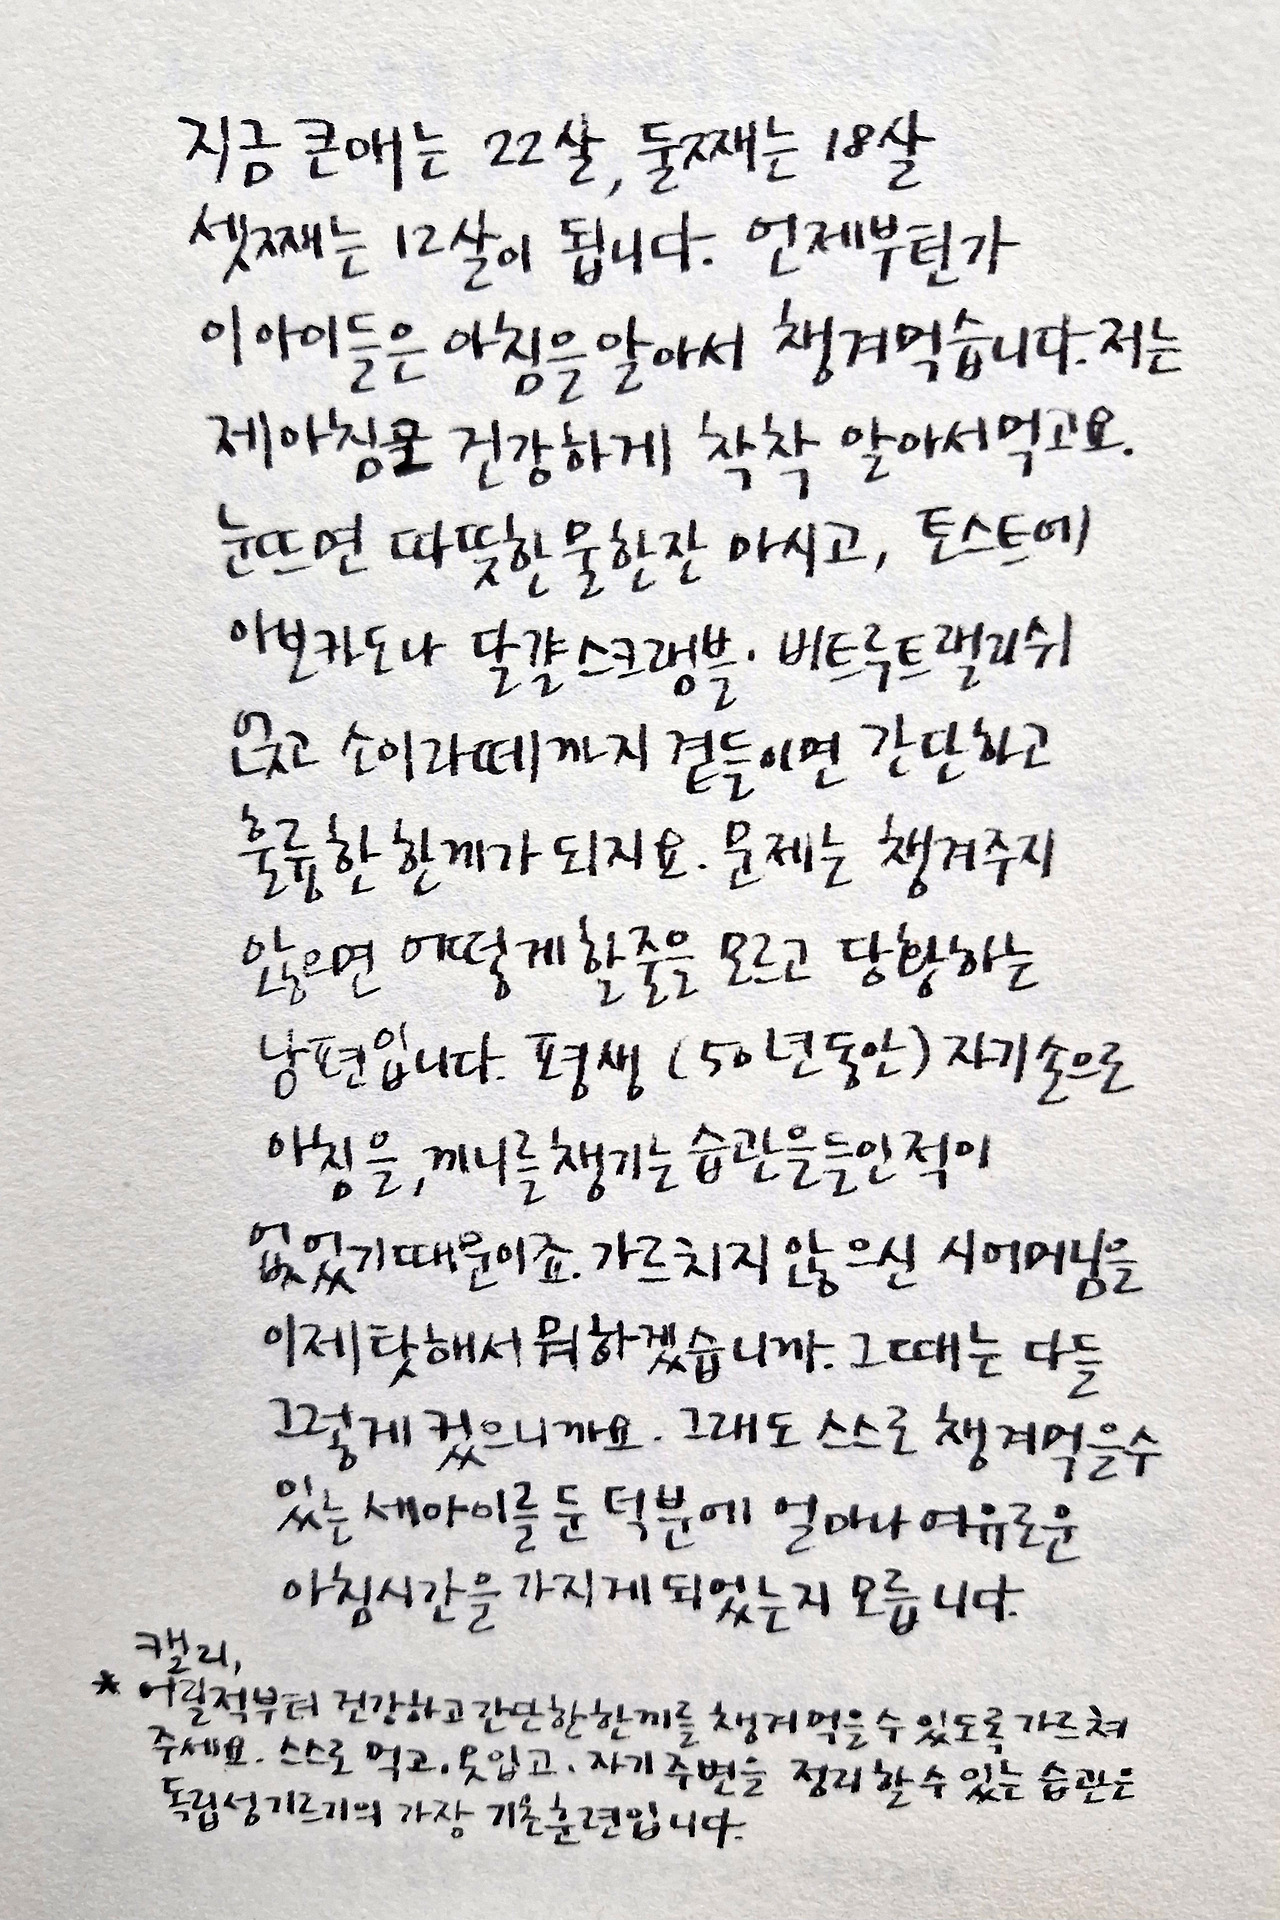 지금 큰애는 22살, 둘째는 18살
셋째는 12살이 됩니다. 언제부턴가
이 아이들은 아침을 알아서 챙겨먹습니다. 저는
제 아침도 건강하게 착착 알아서 먹고요.
눈뜨면 따뜻한 물 한잔 마시고, 토스트에
아보카도나 달걀스크램블·비트루트랠리쉬
얹고 소이라떼까지 곁들이면 간단하고
훌륭한 한끼가 되지요. 문제는 챙겨주지
않으면 어떻게 할줄을 모르고 당황하는
남편입니다. 평생 (50년동안) 자기손으로
아침을, 끼니를 챙기는 습관을 들인 적이
없었기 때문이죠. 가르치지 않으신 시어머님을
이제 탓해서 뭐하겠습니까. 그때는 다들
그렇게 컸으니까요. 그래도 스스로 챙겨먹을수
있는 세아이를 둔 덕분에 얼마나 여유로운
아침시간을 가지게 되었는지 모릅니다.
캘리,
* 어릴적부터 건강하고 간단한 한끼를 챙겨 먹을 수 있도록 가르쳐
주세요. 스스로 먹고, 옷입고, 자기 주변을 정리할 수 있는 습관은
독립성 기르기의 가장 기초훈련입니다.